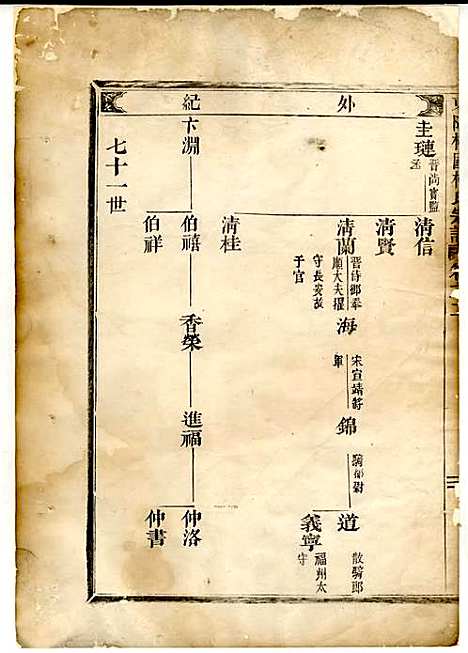 外紀
圭璉 晋尚寶監丞
清信
清賢
清蘭 晋侍郎奉順大夫擢守長安故于官
海 宋宣靖將軍
錦 騎都尉
道 散騎郎
義寧 福州太守
清桂
卞淵
伯禧
香榮
進福
仲洛
伯祥
仲書
七十一世